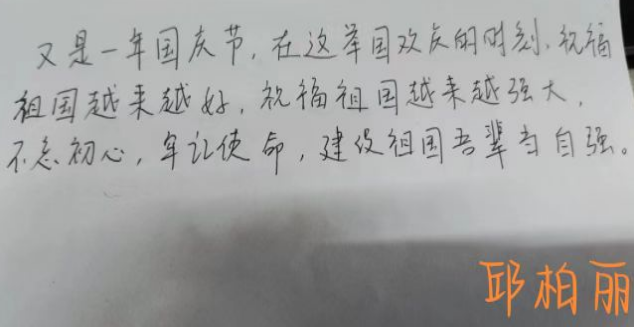 又是一年国庆节，在这举国欢庆的时刻，祝福
祖国越来越好，祝福祖国越来越强大，
不忘初心，牢记使命，建设祖国吾辈当自强。
邱柏丽